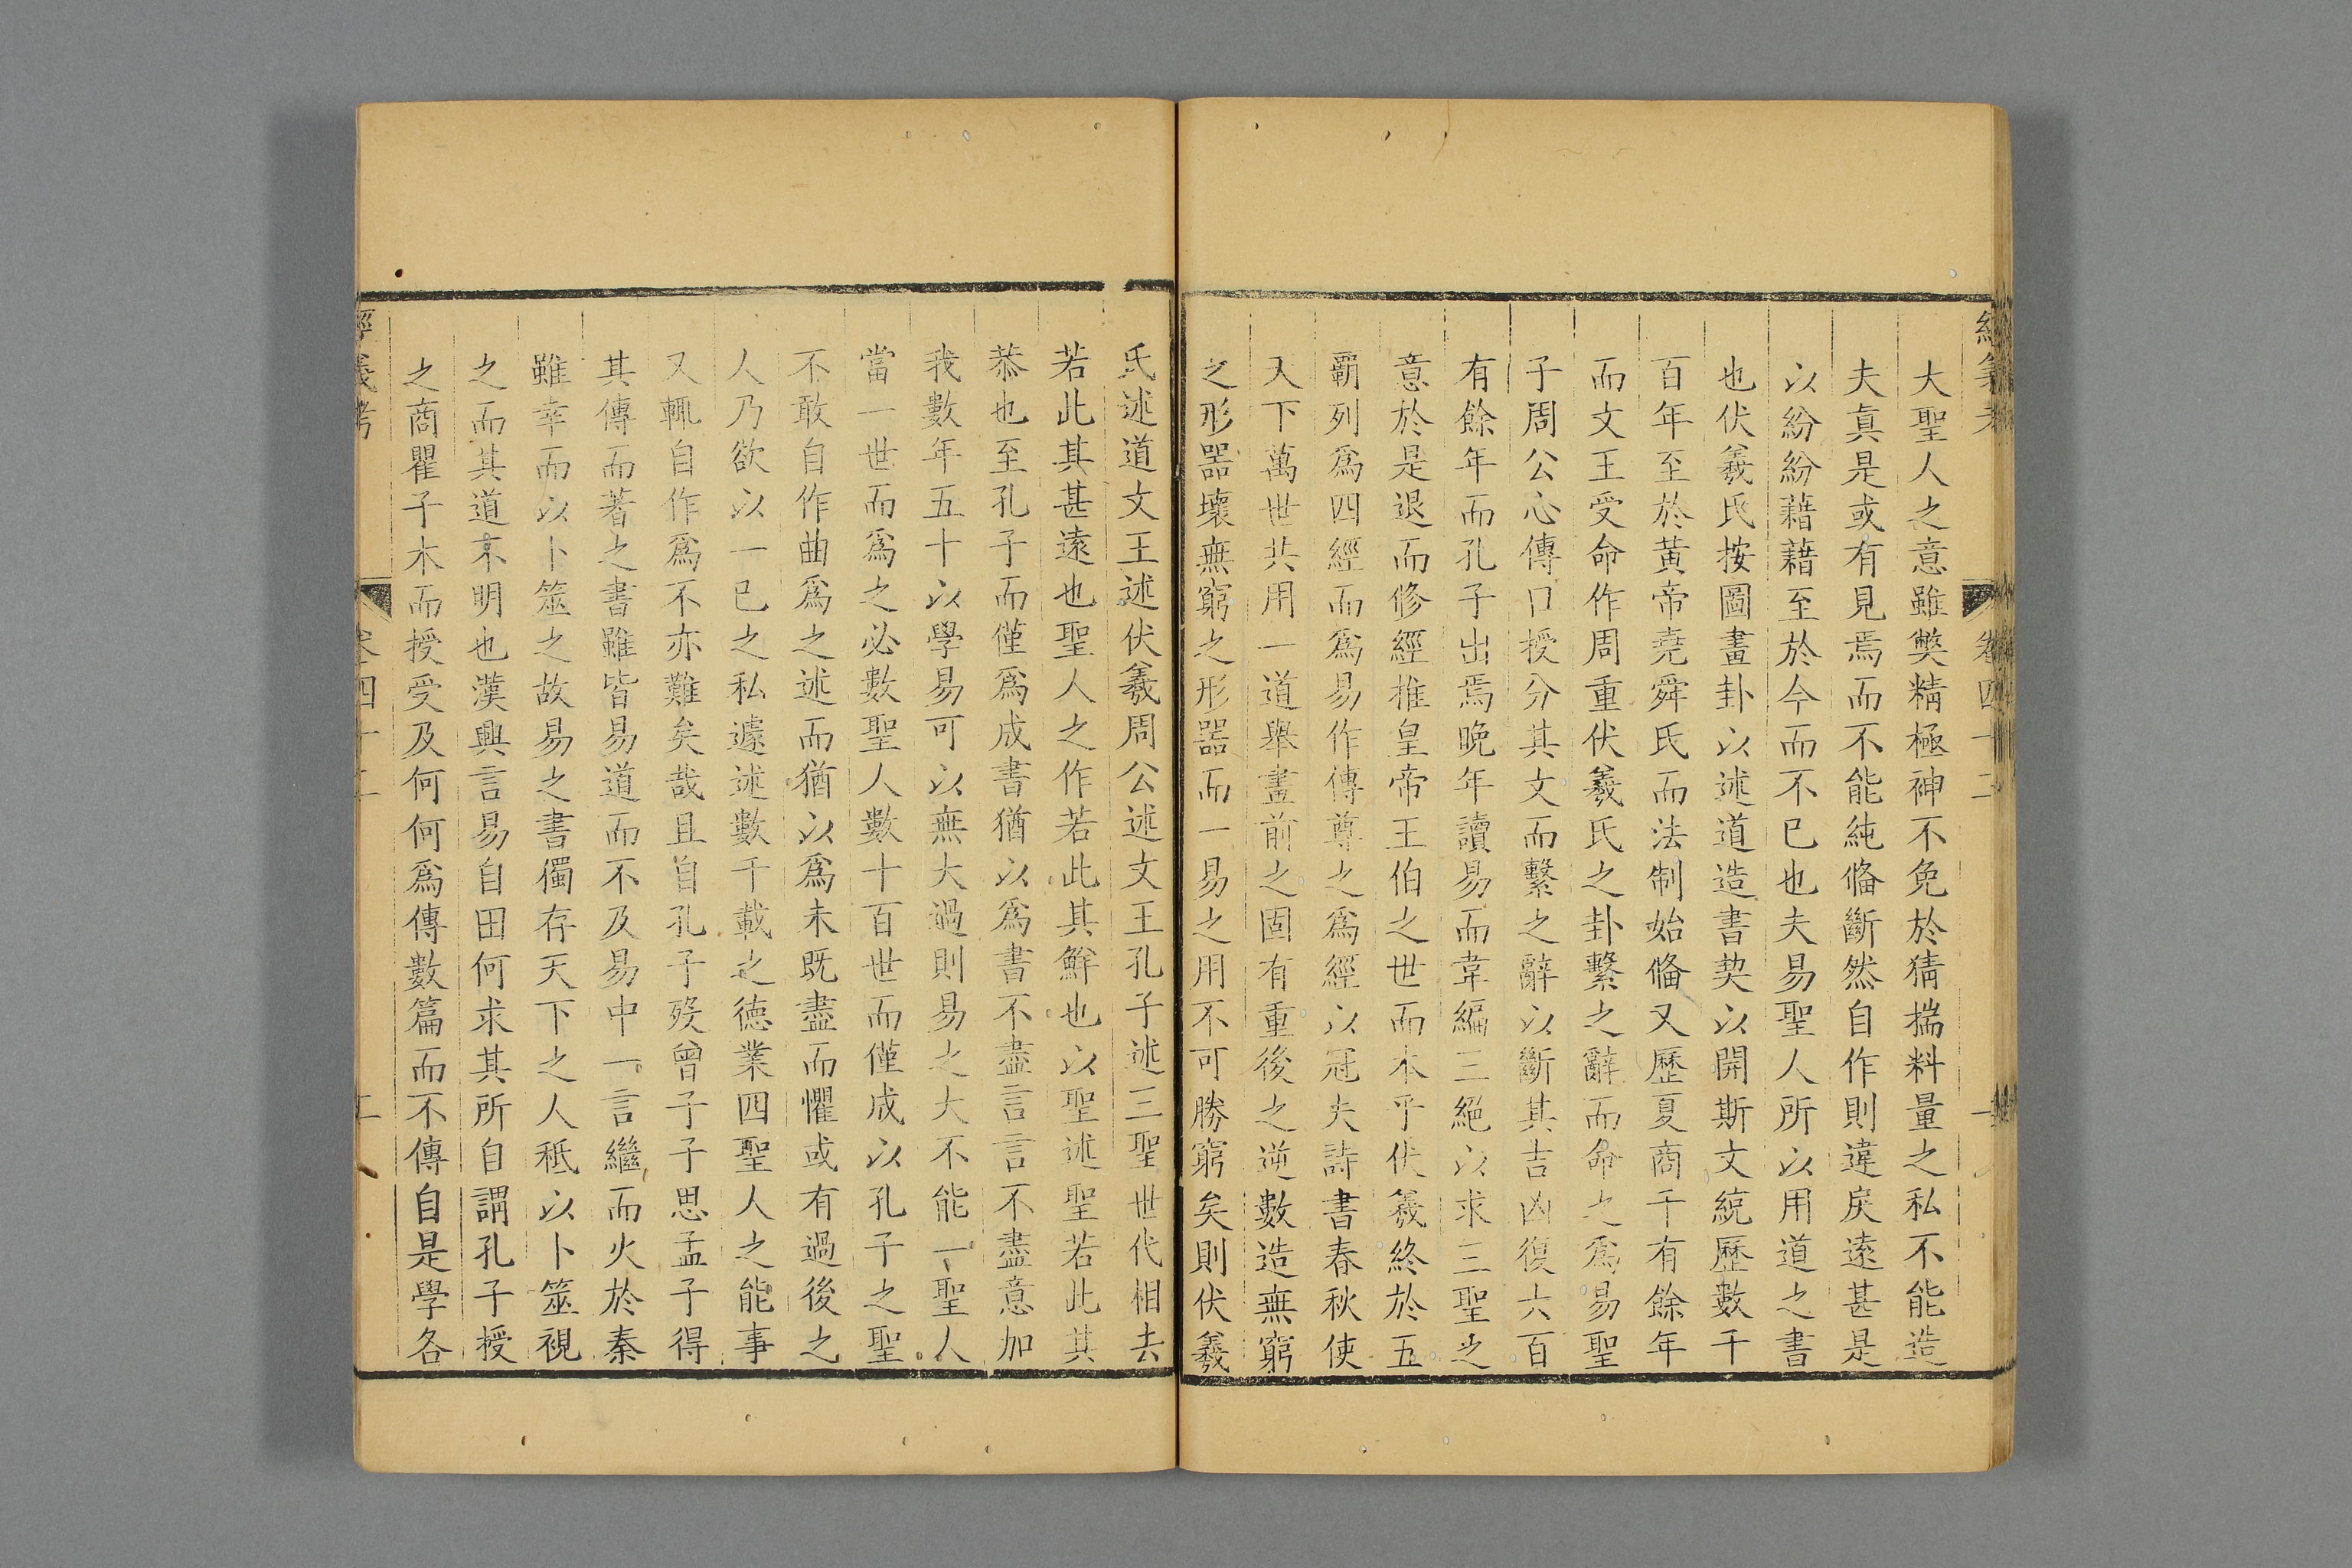 大聖人之意雖獘精極神不免於猜揣料量之私不能造
夫真是或有見焉而不能純俻斷然自作則違戾遠甚是
以紛紛藉藉至於今而不已也夫易聖人所以用道之書
也伏羲氏按圖畫卦以述道造書契以開斯文統歷數千
百年至於黄帝堯舜氏而法制始俻又歷夏商千有餘年
而文王受命作周重伏羲氏之卦繫之辭而命之爲易聖
子周公心傳口授分其文而繫之辭以斷其吉凶復六百
有餘年而孔子出焉晩年讀易而韋編三絕以求三聖之
意於是退而修經推皇帝王伯之世而本乎伏羲終於五
霸列爲四經而爲易作傳尊之爲經以冠夫詩書春秋使
天下萬世共用一道舉畫前之固有重後之逆數造無窮
之形器壞無窮之形器而一易之用不可勝窮矣則伏羲
氏述道文王述伏羲周公述文王孔子述三聖世代相去
若此其甚遠也聖人之作若此其鮮也以聖述聖若此其
恭也至孔子而僅爲成書猶以爲書不盡言言不盡意加
我數年五十以學易可以無大過則易之大不能一聖人
當一世而爲之必數聖人數十百世而僅成以孔子之聖
不敢自作曲爲之述而猶以爲未既盡而懼或有過後之
人乃欲以一已之私遽述數千載之德業四聖人之能事
又輒自作爲不亦難矣哉且自孔子歿曾子子思孟子得
其傳而著之書雖皆易道而不及易中一言繼而火於秦
雖幸而以卜筮之故易之書獨存天下之人秪以卜筮視
之而其道不明也漢興言易自田何求其所自謂孔子授
之商瞿子木而授受及何何爲傳數篇而不傳自是學各
經義考
卷四十二
二